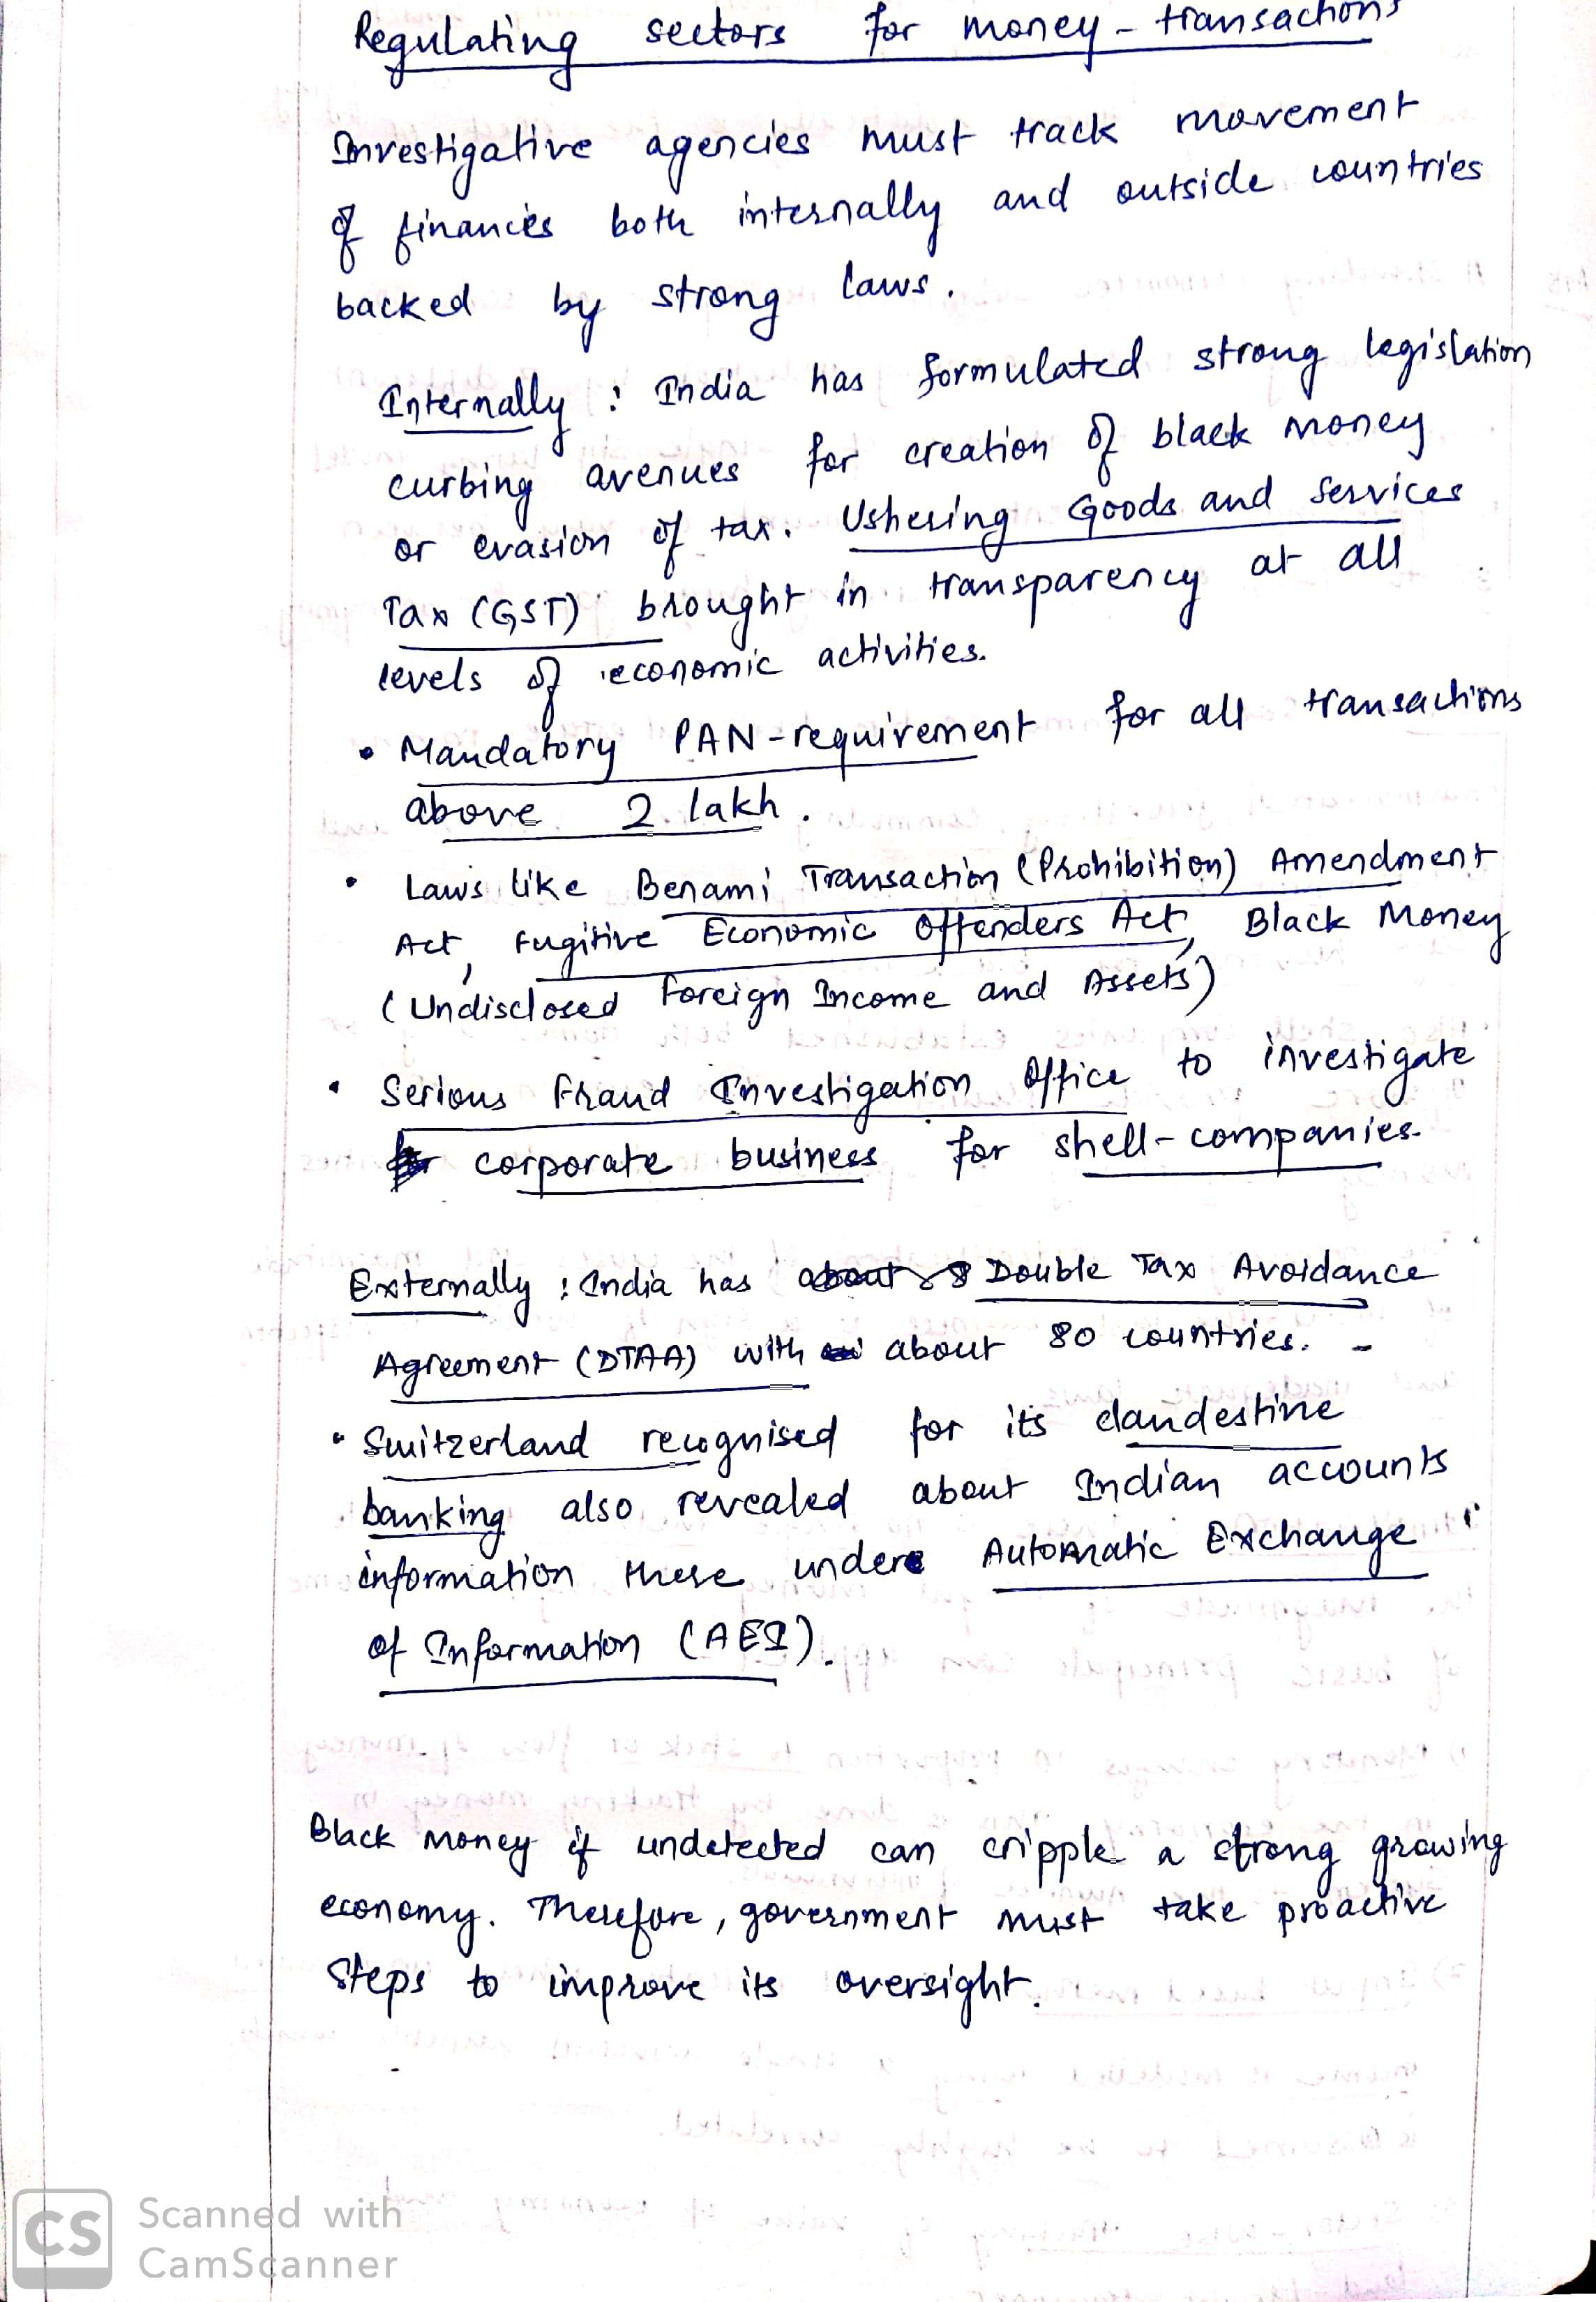 Regulating sectors for money-transactions
Investigative agencies must track movement
of finances both internally and outside countries
backed by strong laws.
Internally : India has formulated strong legislation
curbing avenues for creation of black money
or evasion of tax. Ushering Goods and Services
Tax (GST) brought in transparency at all
levels of economic activities.
• Mandatory PAN-requirement for all transactions
above 2 lakh.
• Laws like Benami Transaction (Prohibition) Amendment
Act, Fugitive Economic Offenders Act, Black Money
(Undisclosed Foreign Income and Assets)
• Serious Fraud Investigation Office to investigate
corporate business for shell-companies.
Externally : India has about 8 Double Tax Avoidance
Agreement (DTAA) with about 80 countries.
• Switzerland recognised for its clandestine
banking also revealed about Indian accounts
information there under Automatic Exchange
of Information (AEI).
Black money if undetected can cripple a strong growing
economy. Therefore, government must take proactive
steps to improve its oversight.
CS Scanned with
CamScanner